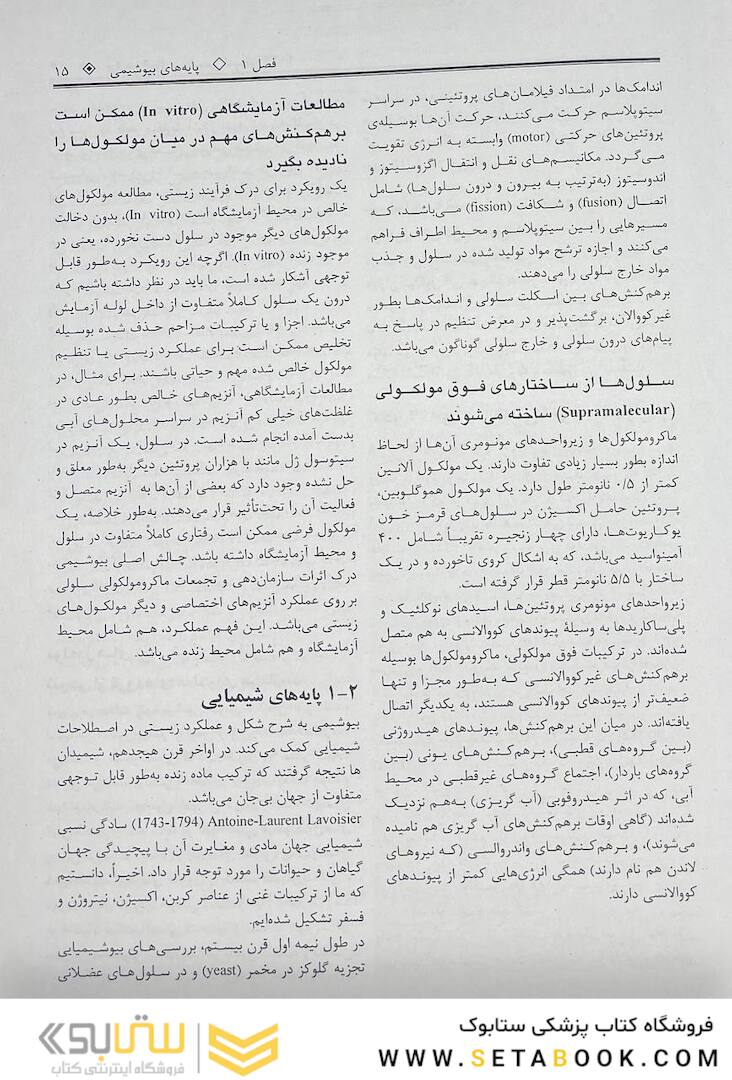 فصل ۱ ◇ پایه‌های بیوشیمی ◈ ۱۵
اندامک‌ها در امتداد فیلامان‌های پروتئینی، در سراسر
سیتوپلاسم حرکت می‌کنند، حرکت آن‌ها بوسیله‌ی
پروتئین‌های حرکتی (motor) وابسته به انرژی تقویت
می‌گردد. مکانیسم‌های نقل و انتقال اگزوسیتوز و
اندوسیتوز (به‌ترتیب به بیرون و درون سلول‌ها) شامل
اتصال (fusion) و شکافت (fission) می‌باشد، کـه
مسیرهایی را بین سیتوپلاسم و محیط اطراف فراهم
می‌کنند و اجازه ترشح مواد تولید شده در سلول و جذب
مواد خارج سلولی را می‌دهند.
برهم‌کنش‌های بین اسکلت سلولی و اندامک‌ها بطور
غیرکووالان، برگشت‌پذیر و در معرض تنظیم در پاسخ به
پیام‌های درون سلولی و خارج سلولی گوناگون می‌باشد.
سلول‌ها از ساختارهای فوق مولکولی
(Supramalecular) ساخته می‌شوند
ماکرومولکول‌ها و زیرواحدهای مونومری آن‌ها از لحاظ
اندازه بطور بسیار زیادی تفاوت دارند. یک مولکول آلانین
کمتر از ۰/۵ نانومتر طول دارد. یک مولکول هموگلوبین،
پروتئین حامل اکسیژن در سلول‌های قرمز خون
یوکاریوت‌ها، دارای چهار زنجیره تقریباً شامل ۴۰۰
آمینواسید می‌باشد، که به اشکال کروی تاخورده و در یک
ساختار با ۵/۵ نانومتر قطر قرار گرفته است.
زیرواحدهای مونومری پروتئین‌ها، اسیدهای نوکلئیک و
پلی‌ساکاریدها به وسیلهٔ پیوندهای کووالانسی به هم متصل
شده‌اند. در ترکیبات فوق مولکولی، ماکرومولکول‌ها بوسیله
برهم‌کنش‌های غیرکووالانسی که به‌طور مجزا و تنها
ضعیف‌تر از پیوندهای کووالانسی هستند، به یکدیگر اتصال
یافته‌اند. در میان این برهم‌کنش‌ها، پیوندهای هیدروژنی
(بین گروه‌های قطبی)، برهم‌کنش‌های یونی (بین
گروه‌های باردار)، اجتماع گروه‌های غیرقطبی در محیط
آبی، که در اثر هیدروفوبی (آب گریزی) به‌هم نزدیک
شده‌اند (گاهی اوقات برهم‌کنش‌های آب گریزی هم نامیده
می‌شوند)، و برهم‌کنش‌های واندروالسی (که نیروهای
لاندن هم نام دارند) همگی انرژی‌هایی کمتر از پیوندهای
کووالانسی دارند.
مطالعات آزمایشگاهی (In vitro) ممکن است
برهم‌کنش‌های مهم در میان مولکول‌ها را
نادیده بگیرد
یک رویکرد برای درک فرآیند زیستی، مطالعه مولکول‌های
خالص در محیط آزمایشگاه است (In vitro)، بدون دخالت
مولکول‌های دیگر موجود در سلول دست نخورده، یعنی در
موجود زنده (In vitro). اگرچه این رویکرد به‌طور قابل
توجهی آشکار شده است، ما باید در نظر داشته باشیم که
درون یک سلول کاملاً متفاوت از داخل لوله آزمایش
می‌باشد. اجزا و یا ترکیبات مزاحم حذف شده بوسیله
تخلیص ممکن است برای عملکرد زیستی یا تنظیم
مولکول خالص شده مهم و حیاتی باشند. برای مثال، در
مطالعات آزمایشگاهی، آنزیم‌های خالص بطور عادی در
غلظت‌های خیلی کم آنزیم در سراسر محلول‌های آبی
بدست آمده انجام شده است. در سلول، یک آنزیم در
سیتوسول ژل مانند با هزاران پروتئین دیگر به‌طور معلق و
حل نشده وجود دارد که بعضی از آن‌ها به آنزیم متصل و
فعالیت آن را تحت‌تأثیر قرار می‌دهند. به‌طور خلاصه، یک
مولکول فرضی ممکن است رفتاری کاملاً متفاوت در سلول
و محیط آزمایشگاه داشته باشد. چالش اصلی بیوشیمی
درک اثرات سازمان‌دهی و تجمعات ماکرومولکولی سلولی
بر روی عملکرد آنزیم‌های اختصاصی و دیگر مولکول‌های
زیستی می‌باشد. این فهم عملکرد، هم شامل محیط
آزمایشگاه و هم شامل محیط زنده می‌باشد.
۱-۲ پایه‌های شیمیایی
بیوشیمی به شرح شکل و عملکرد زیستی در اصطلاحات
شیمیایی کمک می‌کند. در اواخر قرن هیجدهم، شیمیدان
ها نتیجه گرفتند که ترکیب ماده زنده به‌طور قابل توجهی
متفاوت از جهان بی‌جان می‌باشد.
Antoine-Laurent Lavoisier (1743-1794) سادگی نسبی
شیمیایی جهان مادی و مغایرت آن با پیچیدگی جهان
گیاهان و حیوانات را مورد توجه قرار داد. اخیراً، دانستیم
که ما از ترکیبات غنی از عناصر کربن، اکسیژن، نیتروژن و
فسفر تشکیل شده‌ایم.
در طول نیمه اول قرن بیستم، بررسی‌های بیوشیمیایی
تجزیه گلوکز در مخمر (yeast) و در سلول‌های عضلانی
فروشگاه کتاب پزشکی ستابوک
WWW.SETABOOK.COM
ستابوک
فروشگاه اینترنتی کتاب